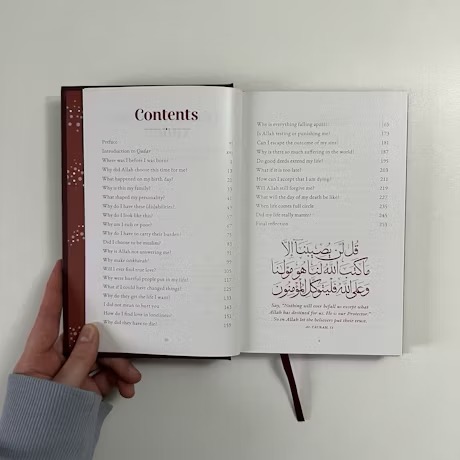 Contents
Preface
Introduction to Qadar
Where was I before I was born?
Why did Allah choose this time for me?
What happened on my birth day?
Why is this my family?
What shaped my personality?
Why do I have these (dis)abilities?
Why do I look like this?
Why am I
Why do I have to carry
Did I choose to be muslim?
Why is Allah not answering me?
Why make
Will I ever find love?
Why were harmful people put in my life?
What if I could have changed things?
Why do they get the life I want?
I did not mean to hurt you
How do I find love in loneliness?
Why did they have to die? 159
Why is everything falling apart? 165
Is Allah testing or punishing me? 173
Can I escape the outcome of my sins? 181
Why is there so much suffering in the world? 187
Do good deeds extend my life? 195
What if it is too late? 203
How can I accept that I am dying? 211
Will Allah forgive me? 219
What will the day of my death be like? 227
When life comes full circle 235
Did my life really matter? 245
Final reflection 253
قُل لَّن يُصِيبَنَا إِلَّا
مَا كَتَبَ اللَّهُ لَنَا هُوَ مَوْلَانَا
وَعَلَى اللَّهِ فَلْيَتَوَكَّلِ الْمُؤْمِنُونَ
Say, "Nothing will ever befall us except what
Allah has destined for us. He is our Protector."
So in Allah let the believers put their trust.
AT TAUBAH 51